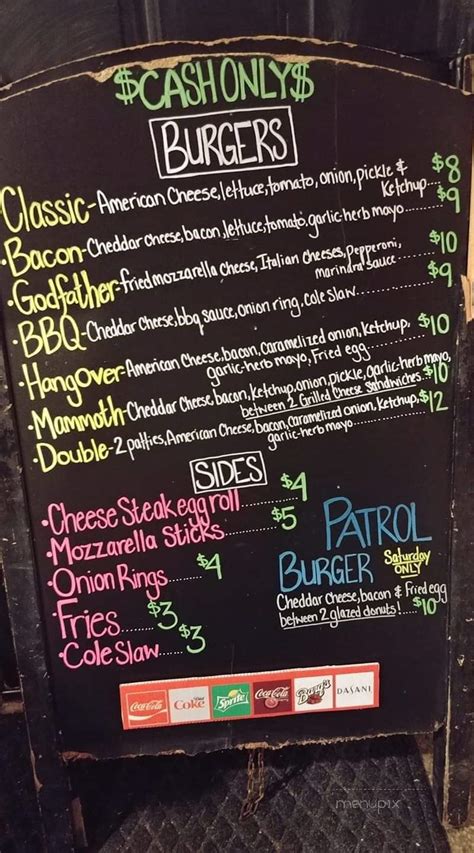 $CASH ONLY$
BURGERS
Classic-American Cheese, lettuce, tomato, onion, pickle &
Ketchup... $8
•Bacon-Cheddar cheese, bacon, lettuce, tomato, garlic-herb mayo......... $9
•Godfather-fried mozzarella cheese, Italian cheeses, Pepperoni,
marinara sauce...... $10
•BBQ-Cheddar Cheese, bbq sauce, onion ring, cole slaw...... $9
•HangOver-American Cheese, bacon, caramelized onion, Ketchup,
garlic-herb mayo, Fried egg......... $10
•Mammoth-Cheddar Cheese, bacon, ketchup, onion, pickle, garlic-herb mayo,
between 2 Grilled Cheese Sandwiches...$10
•Double-2 patties, American Cheese, bacon, caramelized onion, Ketchup,
garlic-herb mayo......... $12
SIDES
•Cheese Steak egg roll......... $4
•Mozzarella Sticks......... $5
•Onion Rings...... $4
•Fries...... $3
•Cole Slaw... $3
PATROL
BURGER Saturday ONLY
Cheddar Cheese, bacon & Fried egg
between 2 glazed donuts!.... $10
Coca-Cola
Diet Coke
Sprite
Coca-Cola
Barq's
DASANI
menupix